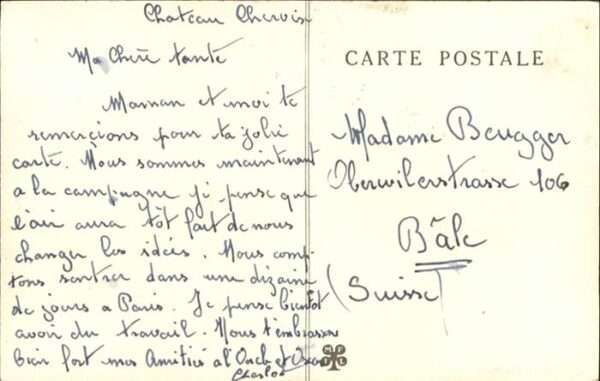 Chateau Chervix
Ma Chère tante
Maman et moi te
remercions pour ta jolie
carte. Nous sommes maintenant
a la campagne je pense que
l'air aura tôt fait de nous
changer les idées. Nous comp
tons rentrer dans une dizaine
de jours a Paris. Je pense bientôt
avoir du travail. Nous t'embrassons
bien fort mes Amitiés a l'Oncle et
Charlot
CARTE POSTALE
Madame Beugger
Oberwilerstrasse 106
Bâle
(Suisse)